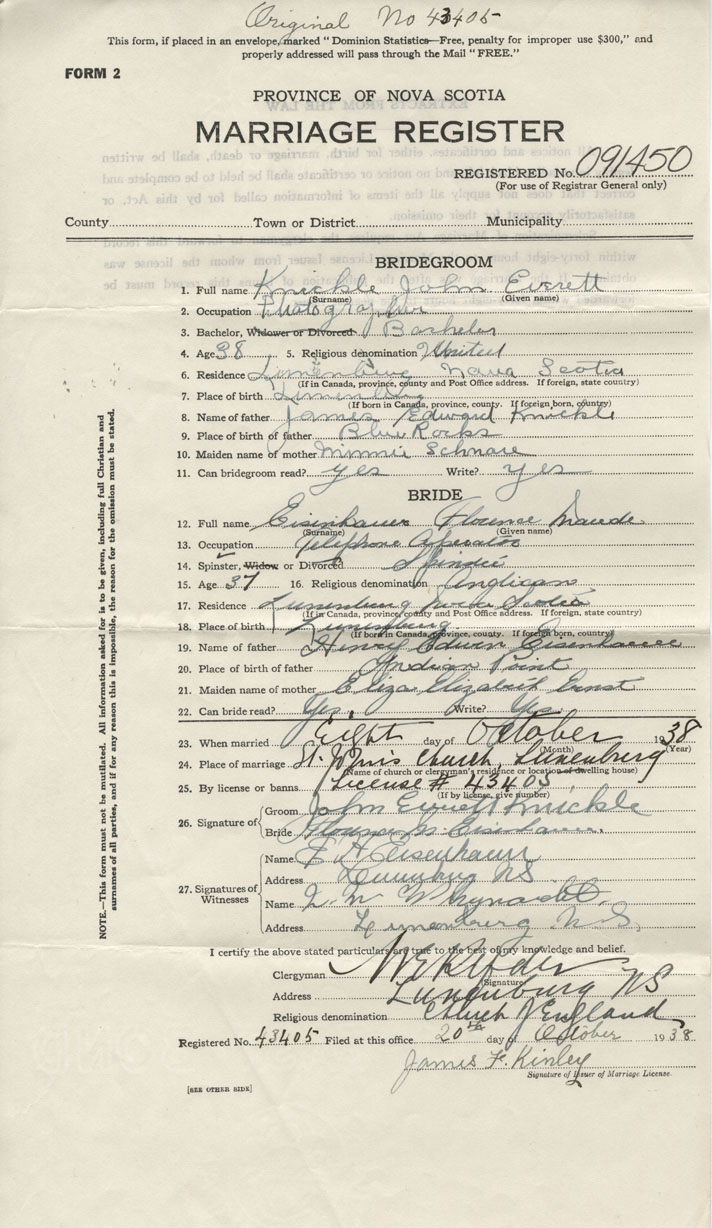 Original No 43405
This form, if placed in an envelope, marked "Dominion Statistics—Free, penalty for improper use $300," and
properly addressed will pass through the Mail "FREE."
FORM 2
PROVINCE OF NOVA SCOTIA
MARRIAGE REGISTER
REGISTERED No. 091450
(For use of Registrar General only)
County Town or District Municipality
BRIDEGROOM
1. Full name Knickle John Everett
(Surname) (Given name)
2. Occupation Photographer
3. Bachelor, Widower or Divorced Bachelor
4. Age 38 5. Religious denomination United
6. Residence Lunenburg Nova Scotia
(If in Canada, province, county and Post Office address. If foreign, state country)
7. Place of birth Lunenburg
(If born in Canada, province, county. If foreign born, country)
8. Name of father James Edward Knickle
9. Place of birth of father Blue Rocks
10. Maiden name of mother Minnie Schnare
11. Can bridegroom read? yes Write? yes
BRIDE
12. Full name Eisenhauer Florence Maude
(Surname) (Given name)
13. Occupation Telephone Operator
14. Spinster, Widow or Divorced Spinster
15. Age 37 16. Religious denomination Anglican
17. Residence Lunenburg Nova Scotia
(If in Canada, province, county and Post Office address. If foreign, state country)
18. Place of birth Lunenburg
(If born in Canada, province, county. If foreign born, country)
19. Name of father Henry Edwin Eisenhauer
20. Place of birth of father Indian Point
21. Maiden name of mother Eliza Elizabeth Ernst
22. Can bride read? Yes. Write? Yes.
23. When married Eight day of October 1938
(Month) (Year)
24. Place of marriage St. John's Church, Lunenburg
(Name of church or clergyman's residence or location of dwelling house)
25. By license or banns License # 43405
(If by license, give number)
26. Signature of Groom John Everett Knickle
Bride Florence M. Eisenhauer.
27. Signatures of Witnesses
Name F H Eisenhauer
Address Lunenburg NS
Name L. M. Whynacht
Address Lunenburg N.S.
I certify the above stated particulars are true to the best of my knowledge and belief.
Clergyman
(Signature)
Address Lunenburg NS
Religious denomination Church of England
Registered No. 43405 Filed at this office 20th day of October 1938
James F. Kinley
Signature of Issuer of Marriage License.
[SEE OTHER SIDE]
NOTE.—This form must not be mutilated. All information asked for is to be given, including full Christian and
surnames of all parties, and if for any reason this is impossible, the reason for the omission must be stated.